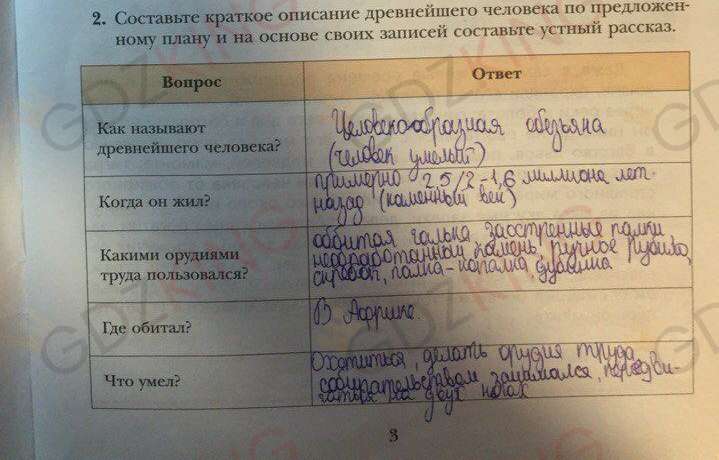 2. Составьте краткое описание древнейшего человека по предложен-
ному плану и на основе своих записей составьте устный рассказ.
Вопрос
Ответ
Как называют
древнейшего человека?
Человекообразная обезьяна
(человек умелый)
Когда он жил?
примерно 2,5/2-1,6 миллиона лет
назад (каменный век)
Какими орудиями
труда пользовался?
оббитая галька, заостренные палки
камень, ручное рубило,
палка-копалка, дубинка
Где обитал?
В Африке
Что умел?
Охотиться, делать орудия труда,
собирательством занимался, передви-
гаться на двух ногах
3
GDZKING